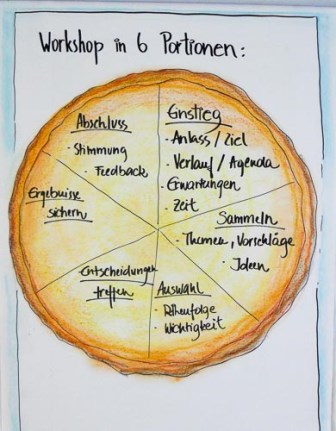 Workshop in 6 Portionen:
Einstieg
- Anlass / Ziel
- Verlauf / Agenda
- Erwartungen
- Zeit
Sammeln
- Themen, Vorschläge
- Ideen
Auswahl
- Reihenfolge
- Wichtigkeit
Entscheidungen
treffen
Ergebnisse
sichern
Abschluss
- Stimmung
- Feedback